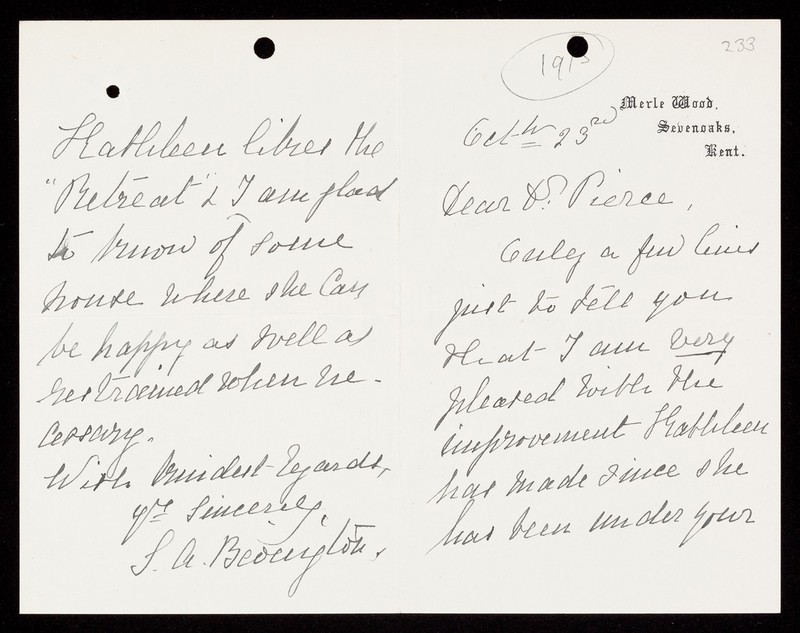 233
Merle Wood,
Sevenoaks,
Kent.
Octbr 23rd
Dear Dr. Pierce,
Only a few lines
just to tell you
that I am very
pleased with the
improvement Kathleen
has made since she
has been under your
Kathleen likes the
"Retreat" & I am glad
to know of some
house where she can
be happy as well as
restrained when ne-
cessary.
With kindest regards,
yrs sincerely,
S. A. Bevington.